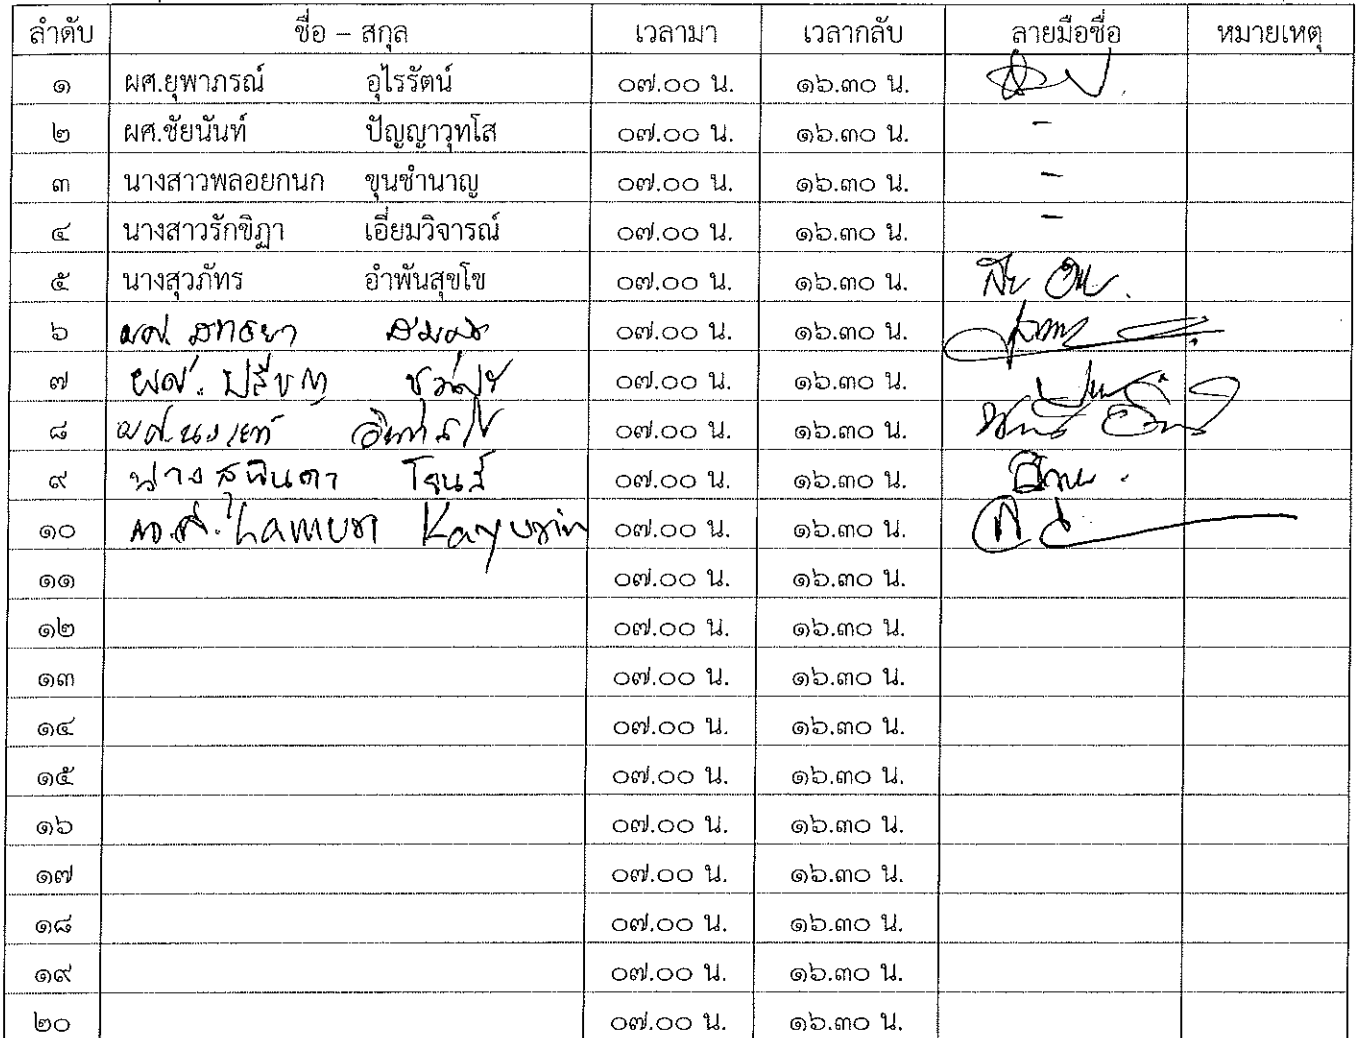 ลำดับ ชื่อ – สกุล เวลามา เวลากลับ ลายมือชื่อ หมายเหตุ
๑ ผศ.ยุพาภรณ์ อุไรรัตน์ ๐๗.๐๐ น. ๑๖.๓๐ น.
๒ ผศ.ชัยนันท์ ปัญญาวุทโส ๐๗.๐๐ น. ๑๖.๓๐ น. -
๓ นางสาวพลอยกนก ขุนชำนาญ ๐๗.๐๐ น. ๑๖.๓๐ น. -
๔ นางสาวรักขิฏา เอี่ยมวิจารณ์ ๐๗.๐๐ น. ๑๖.๓๐ น. -
๕ นางสุวภัทร อำพันสุขโข ๐๗.๐๐ น. ๑๖.๓๐ น.
๖ ผศ. ๐๗.๐๐ น. ๑๖.๓๐ น.
๗ ผศ. ๐๗.๐๐ น. ๑๖.๓๐ น.
๘ ผศ. ๐๗.๐๐ น. ๑๖.๓๐ น.
๙ นาง ๐๗.๐๐ น. ๑๖.๓๐ น.
๑๐ ๐๗.๐๐ น. ๑๖.๓๐ น.
๑๑ ๐๗.๐๐ น. ๑๖.๓๐ น.
๑๒ ๐๗.๐๐ น. ๑๖.๓๐ น.
๑๓ ๐๗.๐๐ น. ๑๖.๓๐ น.
๑๔ ๐๗.๐๐ น. ๑๖.๓๐ น.
๑๕ ๐๗.๐๐ น. ๑๖.๓๐ น.
๑๖ ๐๗.๐๐ น. ๑๖.๓๐ น.
๑๗ ๐๗.๐๐ น. ๑๖.๓๐ น.
๑๘ ๐๗.๐๐ น. ๑๖.๓๐ น.
๑๙ ๐๗.๐๐ น. ๑๖.๓๐ น.
๒๐ ๐๗.๐๐ น. ๑๖.๓๐ น.